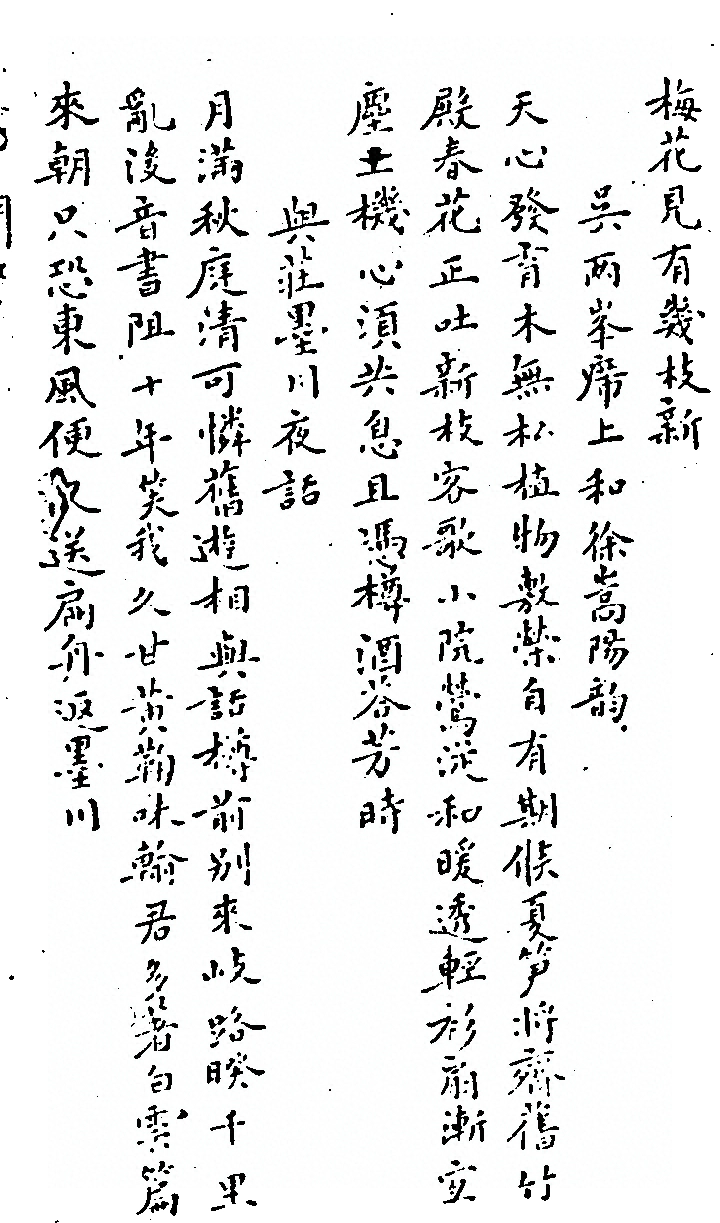 梅花見有幾枝新
吳兩峯席上和徐嵩陽韵
天心發育本無私植物敷榮自有期候夏笋將齊舊竹
殿春花正吐新枝客歌小院鶯淀和暖透輕衫扇漸宜
塵土機心須共息且憑樽酒答芳時
與莊墨川夜話
月滿秋庭清可憐舊遊相與話樽前別來岐路暌千里
亂後音書阻十年笑我久甘黃虀味輸君名著白雲篇
來朝只恐東風便又送扁舟返墨川